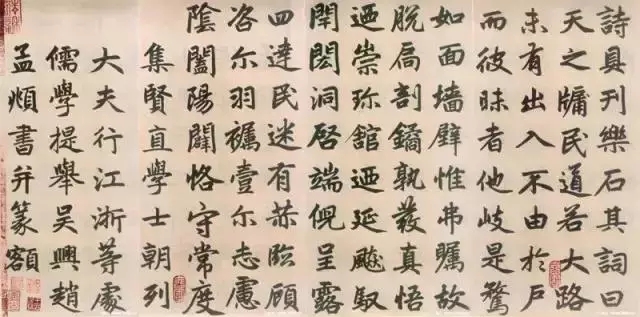 詩具刊樂石其詞曰
天之牖民道若大路
未有出入不由於戶
而彼昧者他岐是騖
如面墻壁惟弗矚故
脫扃剖鐍孰發真悟
迺崇珎館迺延飈馭
閈閎洞啓端倪呈露
四達民迷有赫臨顧
咨尔羽襦壹尔志慮
陰闔陽闢恪守常度
集賢直學士朝列
大夫行江淛等處
儒學提舉吳興趙
孟頫書并篆額